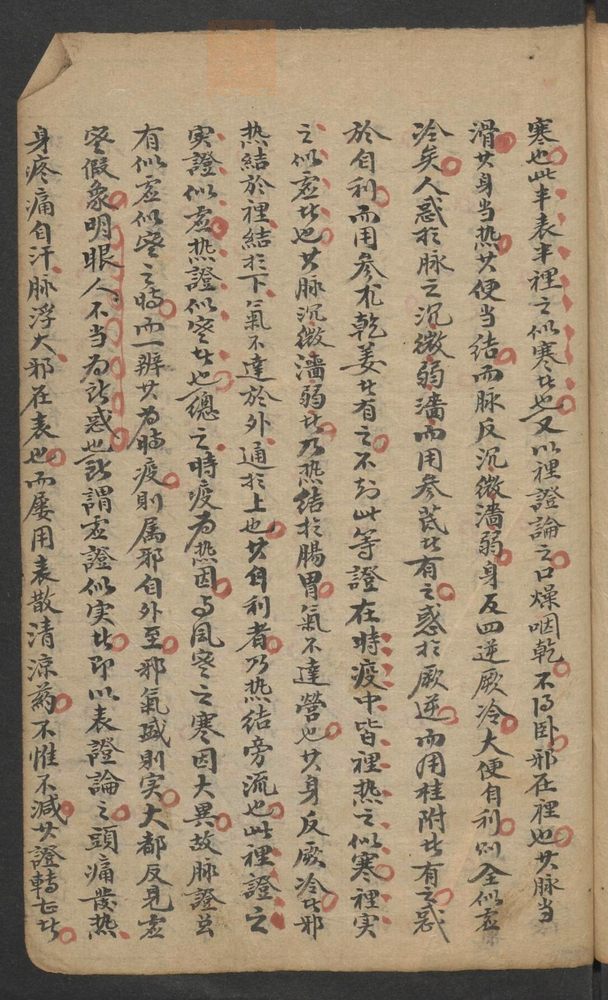 寒也此半表半裡之似寒者也又以裡證論之口燥咽乾不得卧邪在裡也其脉当
滑其身当热其便当结而脉反沉微濇弱身反四逆厥冷大便自利则全似虚
冷矣人惑於脉之沉微弱濇而用參芪者有之惑於厥逆而用桂附者有之惑
於自利而用參朮乾姜者有之不知此等證在時疫中皆裡热之似寒裡实
之似虚者也其脉沉微濇弱者乃热结於腸胃氣不達營也其身反厥冷者邪
热結於裡結於下氣不達於外通於上也其自利者乃热结旁流也此裡證之
实證似虚热證似寒者也總之時疫为热因与風寒之寒因大異故脉證並
有似虚似寒之時而一辨其为時疫則属邪自外至邪氣盛則实大都反見虚
寒假象明眼人不当为所惑也所謂虚證似实者即以表證論之頭痛發热
身疼痛自汗脉浮大邪在表也而屡用表散清涼药不惟不減其證轉甚者